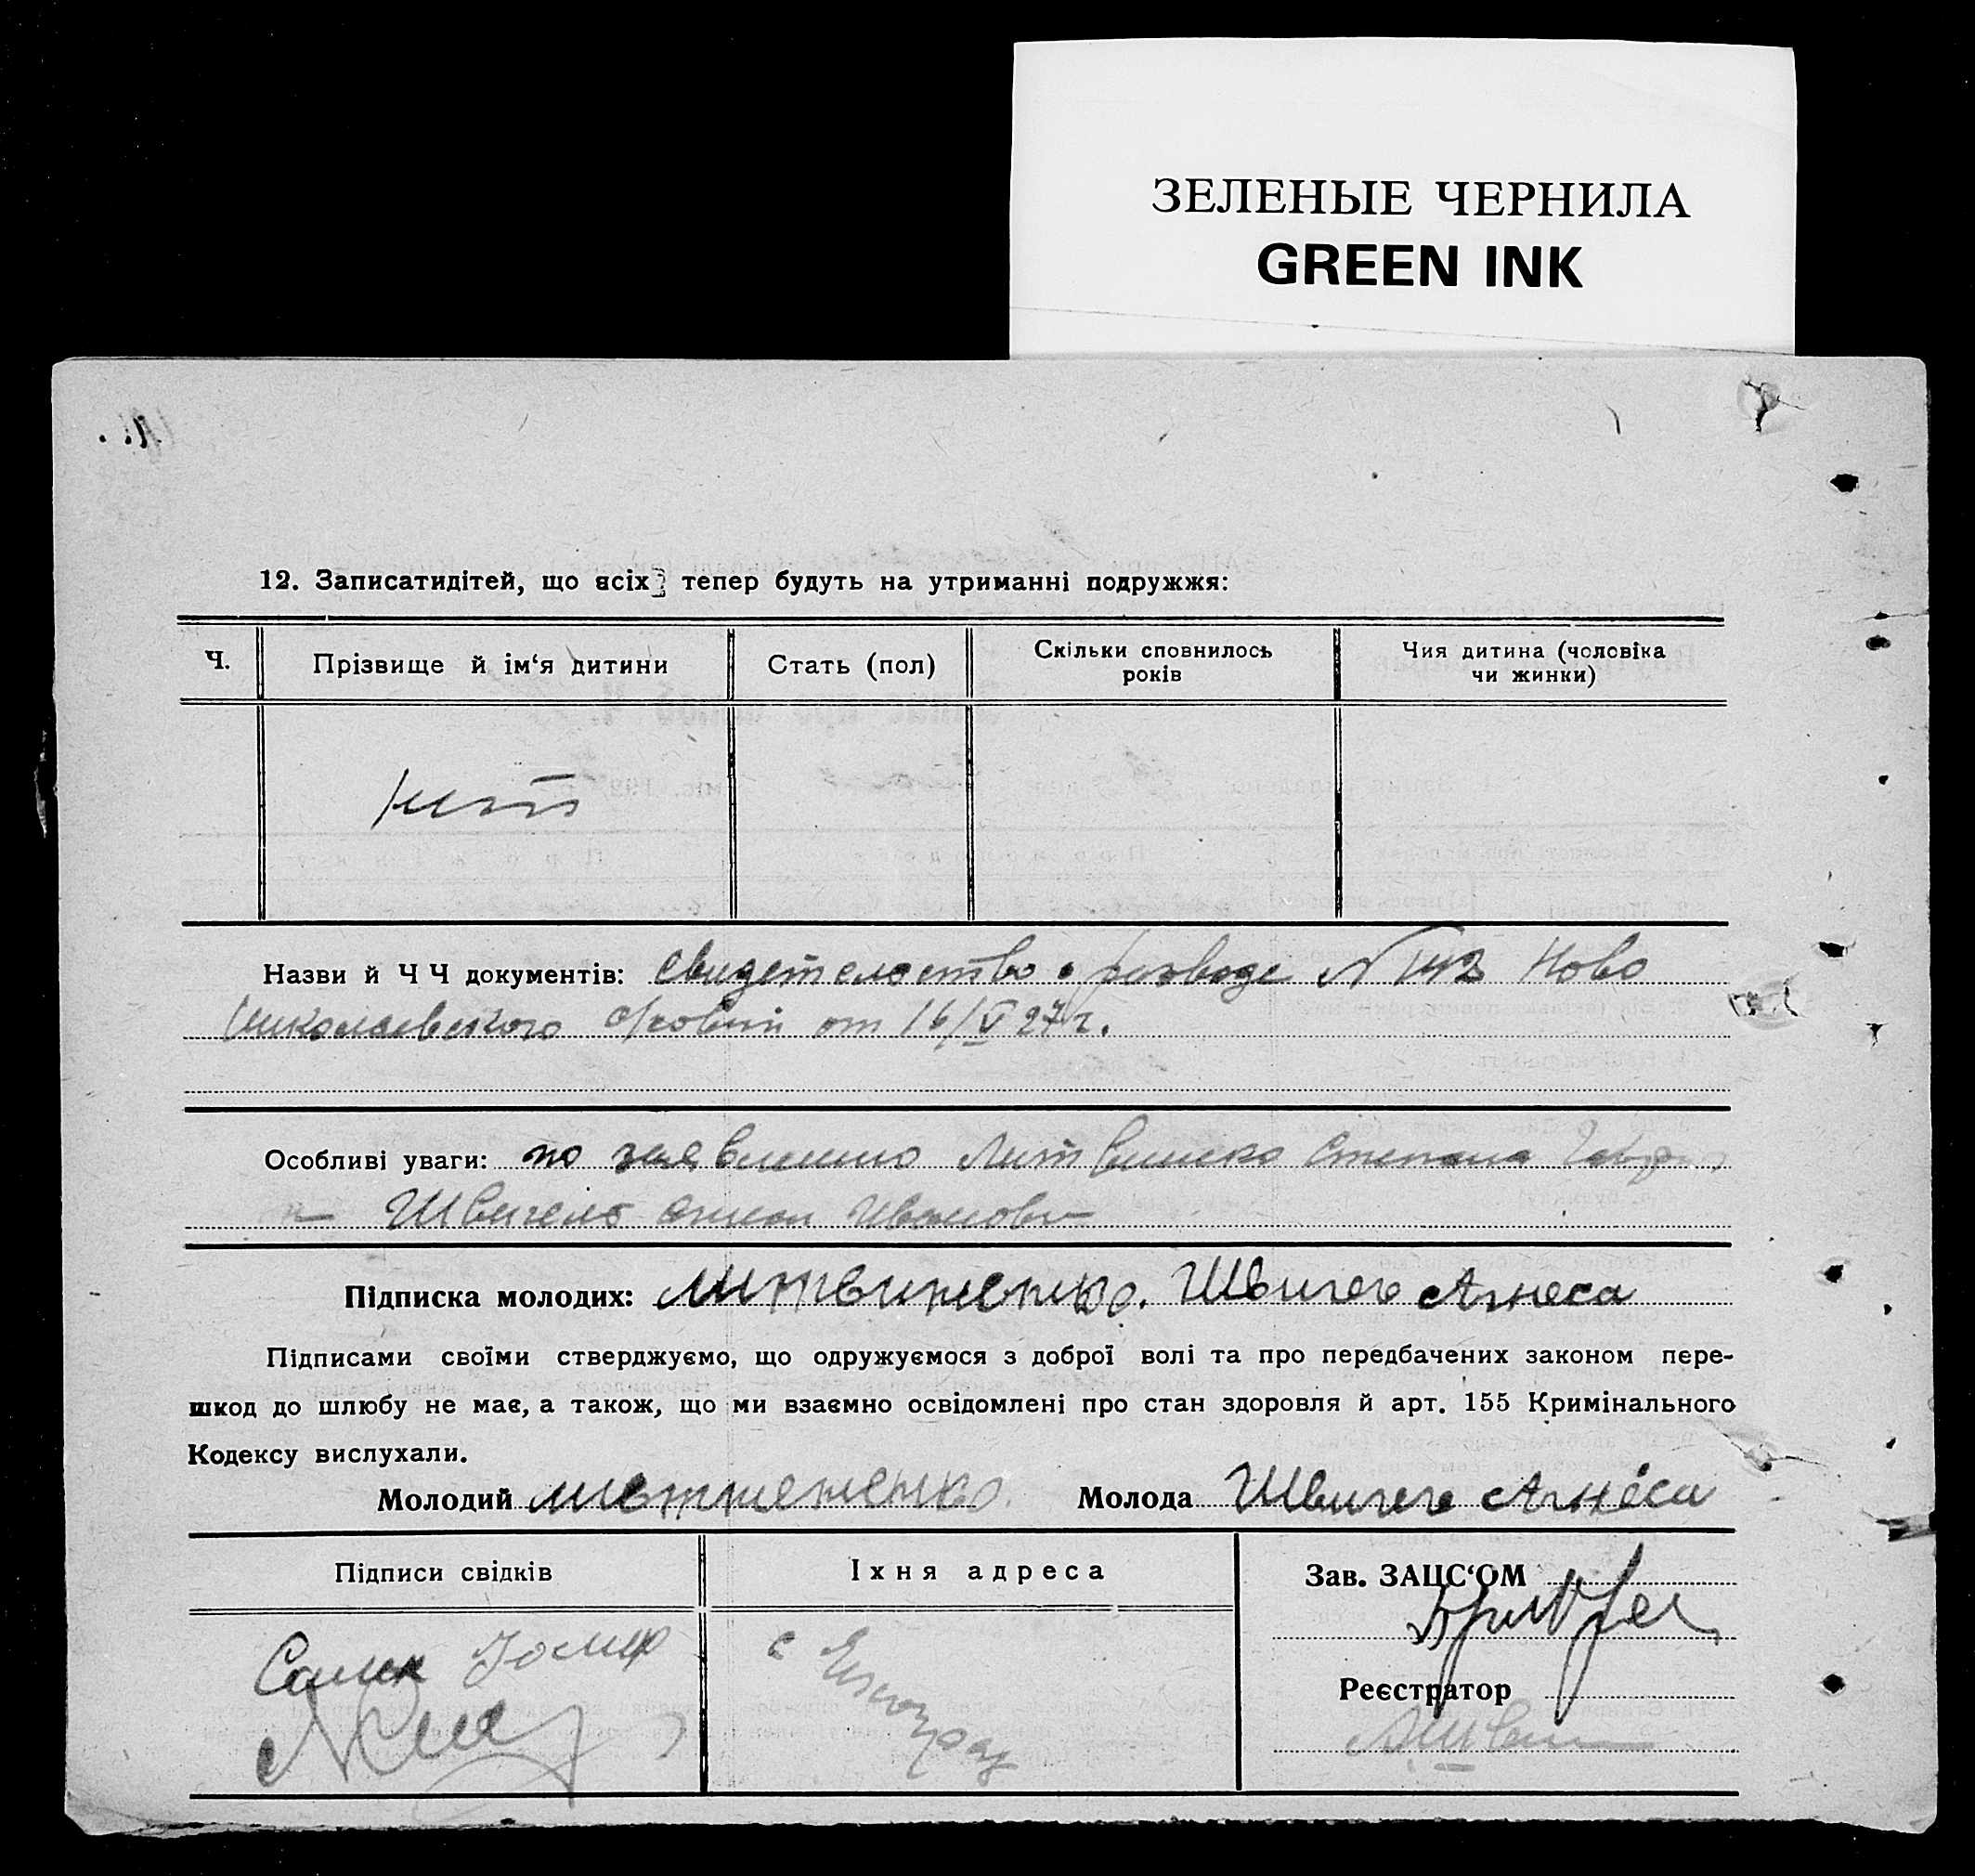 ЗЕЛЕНЫЕ ЧЕРНИЛА
GREEN INK
12. Записатидітей, що всіх тепер будуть на утриманні подружжя:
Ч.
Прізвище й ім‘я дитини
Стать (пол)
Скільки сповнилось
років
Чия дитина (чоловіка
чи жинки)
нет
Назви й Ч Ч документів: Свидетельство о разводе N 142 Ново
николаевского от 16/V 27 г.
Особливі уваги: по заявлению Литвиненко Степана
Швигел Ивановн
Підписка молодих: Литвиненко. Швигел Агнеса
Підписами своїми стверджуємо, що одружуємося з доброї волі та про передбачених законом пере-
шкод до шлюбу не має, а також, що ми взаємно освідомлені про стан здоровля й арт. 155 Кримінального
Кодексу вислухали.
Молодий Молода Швигел Агнеса
Підписи свідків
Їхня адреса
Зав. ЗАЦС‘ОМ
Реєстратор